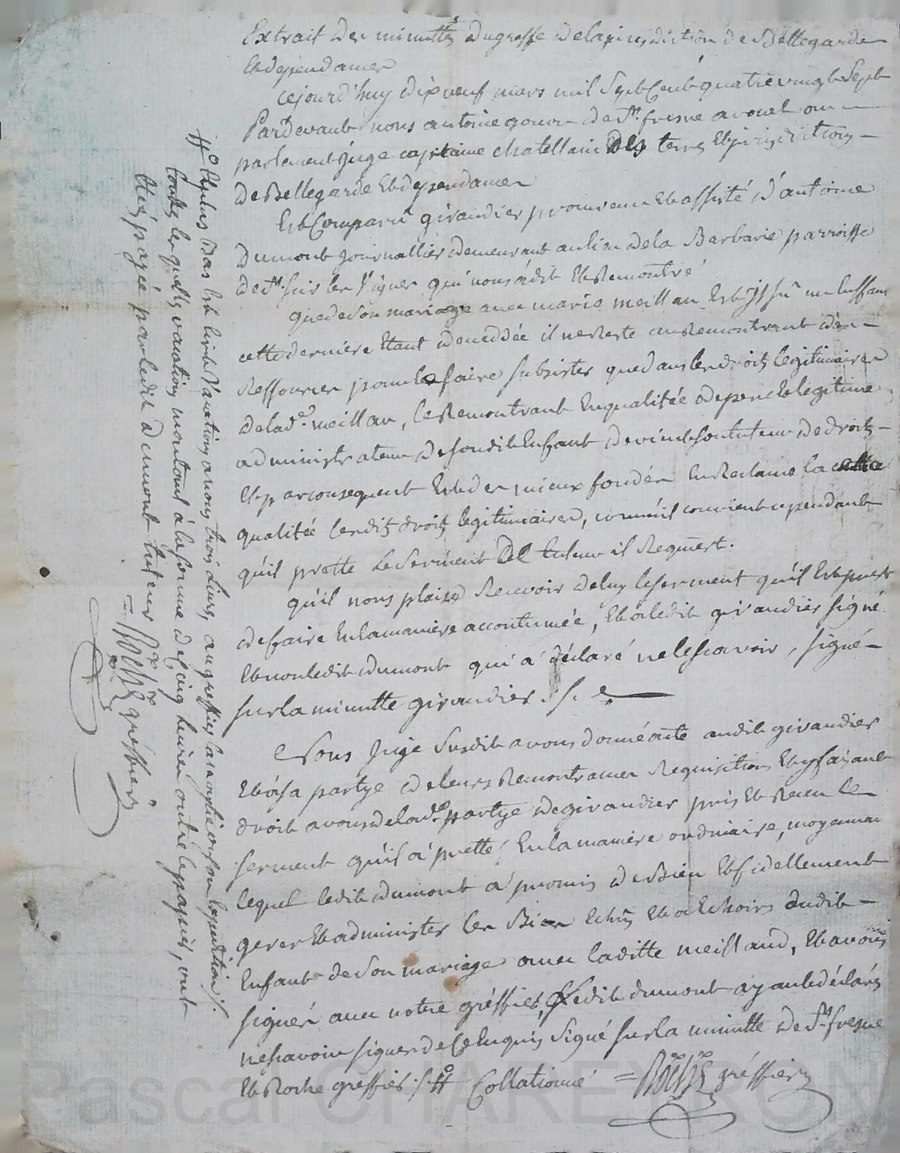 Extrait des minuttes du greffe de la jurisdiction de Bellegarde
Et dependances
cejourd'huy dix neuf mars mil Sept Cent quatre vingt Sept
Pardevant nous antoine gouvre de St fresne avocat en
parlement juge capitaine chatellain des terres Et jurisdiction
de Bellegarde Et dependances
Est Comparu girandier procureur Et assisté d'antoine
Dumont journallier demeurant au lieu de la Barbarie parroisse
de St Sur les Vignes qui nous a dit Et Remontré
que de son mariage avec marie meillan Est issu un Enfant
cette derniere Etant decedée il ne Reste au Remontrant d'au
Ressources pour le faire subsister que dans les droits legitimaires
de lad. meillan, le Remontrant En qualitée de pere Et legitime
administrateur de son dit Enfant devient son tuteur de droits
Et par consequent Est des mieux fondés En Reclame la cette
qualitée lesdits droits legitimaires, comme il convient cependant
qu'il prette le Serment de tuteur il Requert.
qu'il nous plaise Recevoir de luy le serment qu'il Est prest
de faire En la maniere accoutumée, Et a ledit girandier signé
Et non ledit dumont qui a déclaré ne le scavoir, signé
sur la minutte girandier ./.
Nous juge Susdit avons donné acte audit girandier
Et à sa partye de leurs Remontrances Requisitions Et y faisant
droit avons de lad. partye de girandier pris Et Reçu le
serment qu'il a pretté En la maniere ordinaire, moyennant
lequel ledit dumont a promis de Bien Et fidellement
gerer Et administrer les Biens Echus Et a Echoirs audit
Enfant de son mariage avec laditte meilland, Et avons
signé avec notre greffier, ledit dumont ayant déclaré
ne scavoir signer de ce Enquis Signé sur la minutte de St fresne
Et Roche greffier ./. # Collationné = Roche greffier
# Et plus bas Est Ecrit Vacations a nous trois Livres, au greffier la copie Et son Expedition ./.
toutes lesquelles vacations montant à la somme de cinq livres outre le papier, ont
Etes payée par ledit dumont tuteur
= Roche greffier